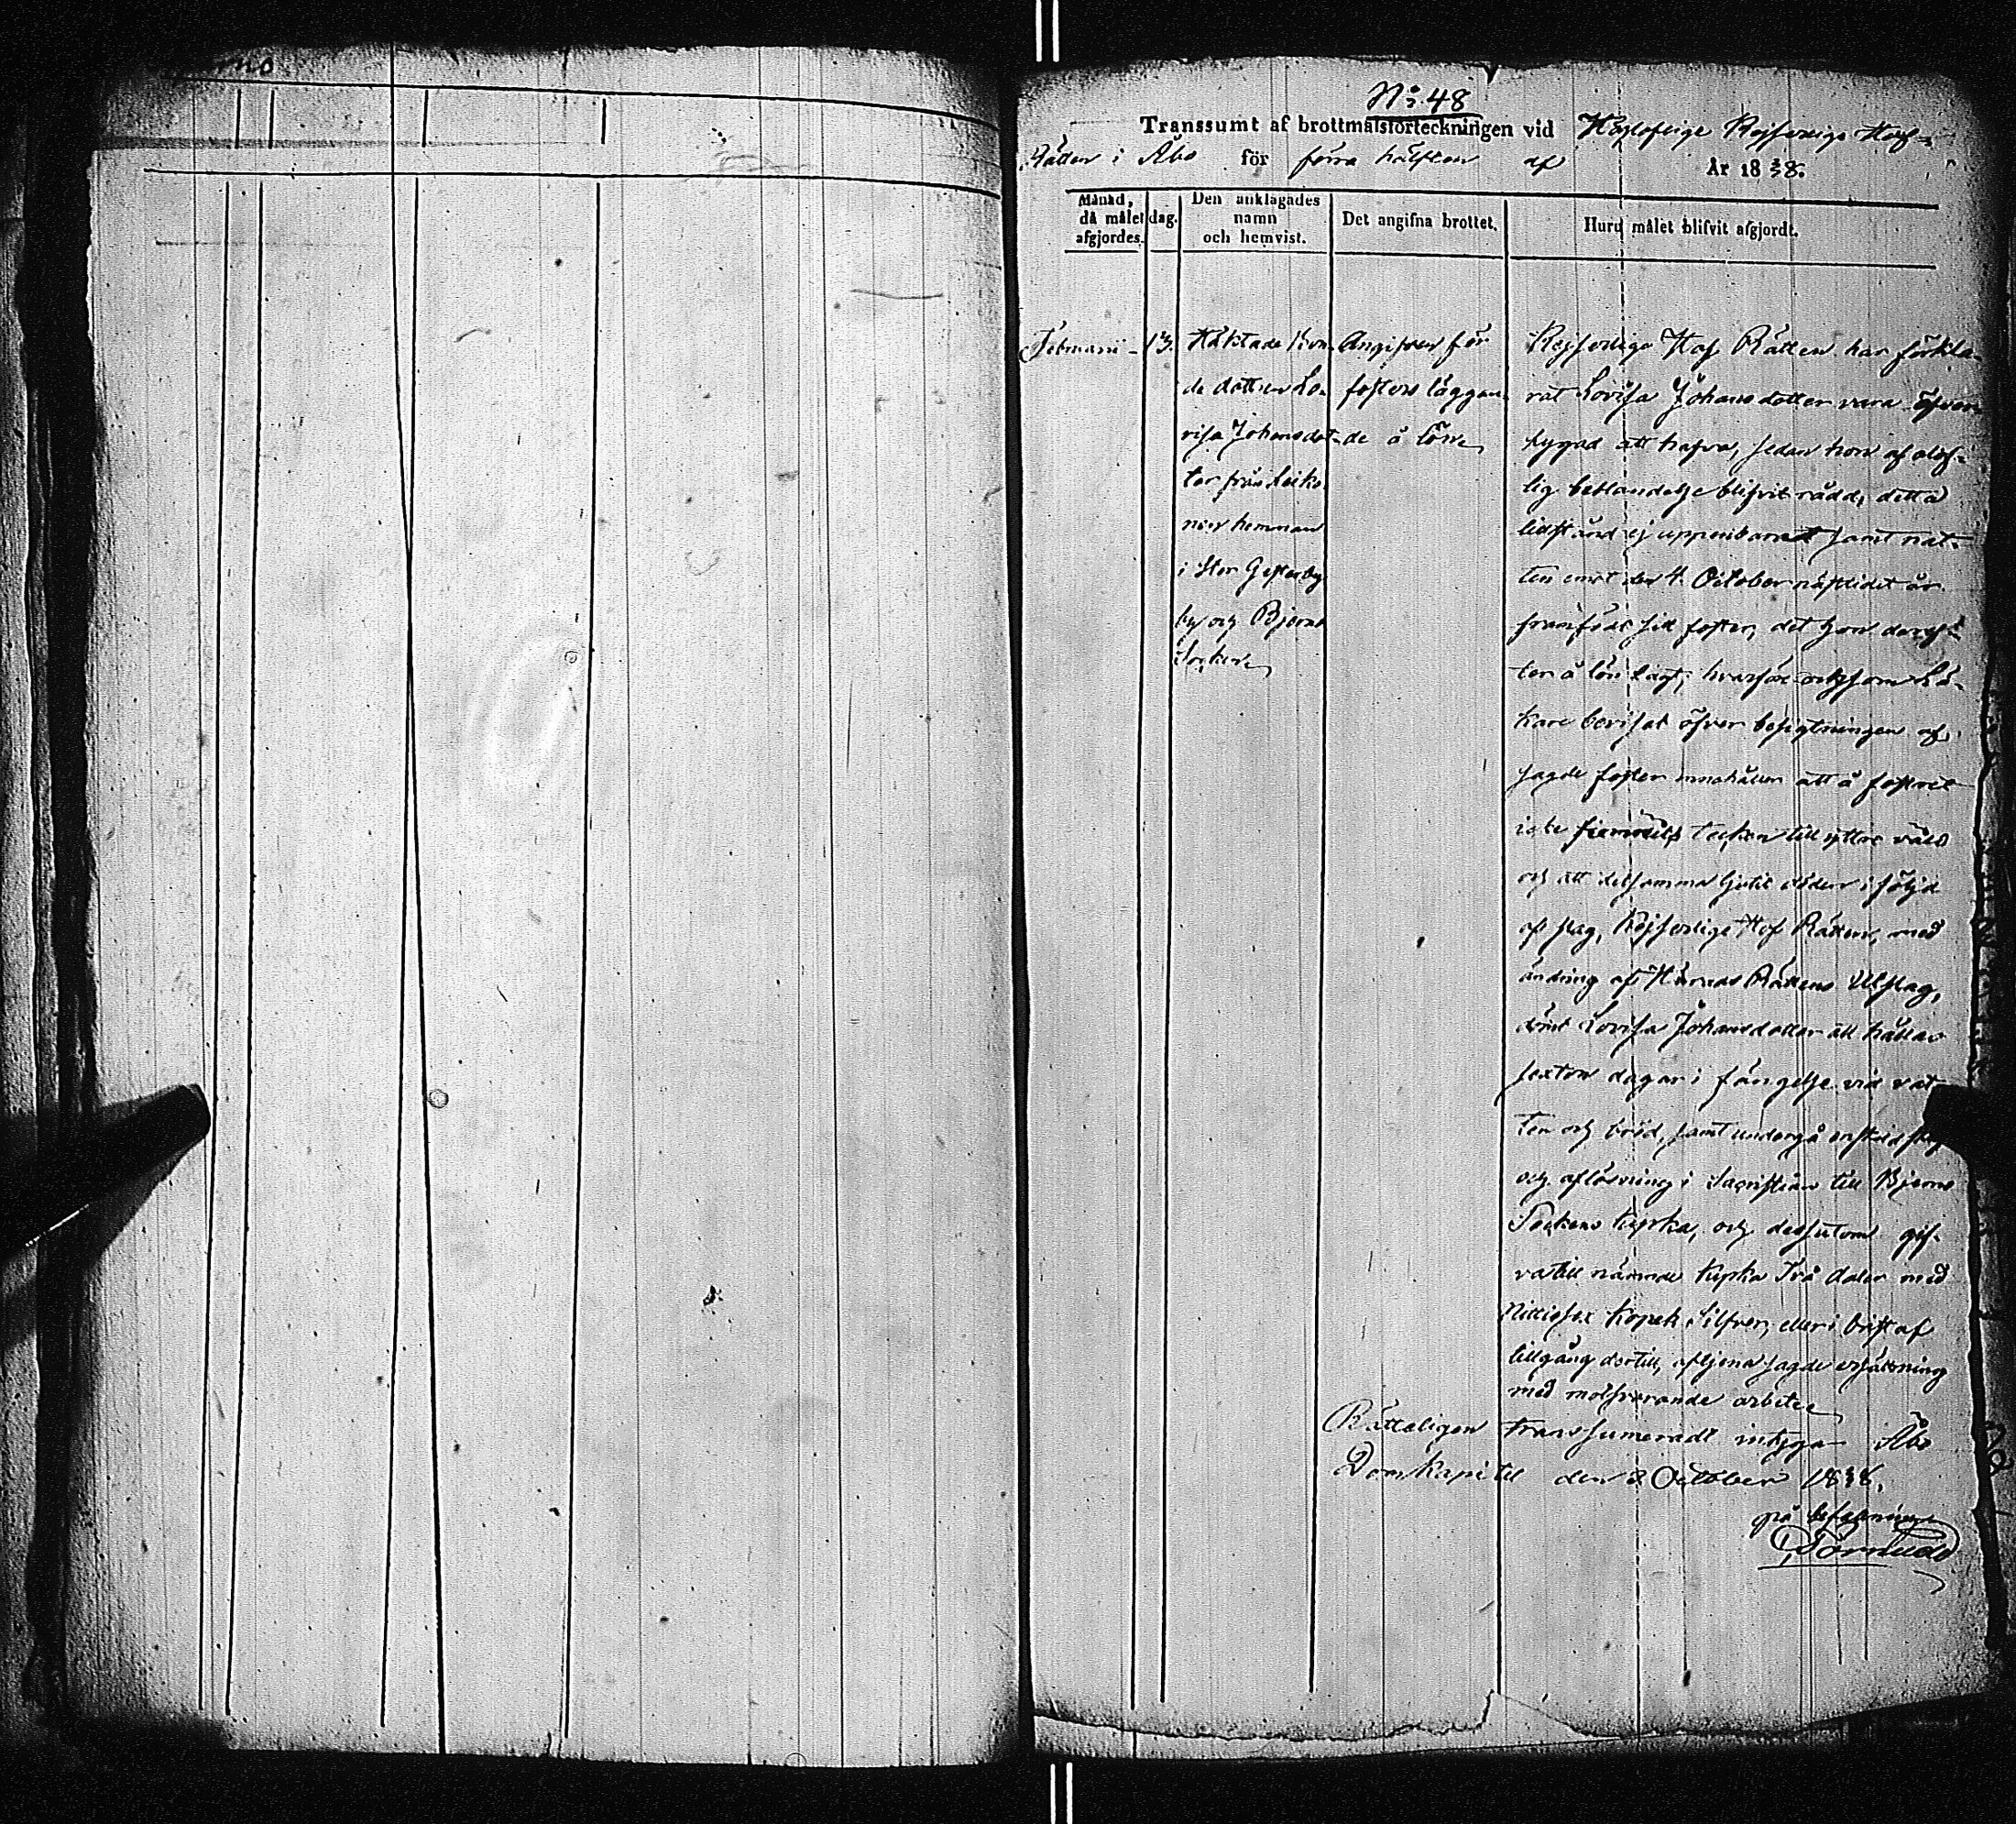 No 48
Transsumt af brottmålsförteckningen vid Högloflige Kejserlige Hof-
Rätten i Åbo för förra hälften af År 1838.
Månad, då målet afgjordes.
dag.
Den anklagades namn och hemvist.
Det angifna brottet.
Huru målet blifvit afgjordt.
Februarii - 13.
Häktade Bon-
de dottren Lo-
visa Johansdot-
ter från Leiko
hemman
i Stor Gesterby
by och Bjerno
Socken
Angifven för
fosters läggan-
de å lön
Kejserlige Hof Rätten har förkla-
rat Lovisa Johansdotter vara öfver-
tygad att hafva, sedan hon af olof-
lig beblandelse blifvit rådd, detta
tillstånd ej uppenbarat samt nat-
ten emot den 4 October nästlidet år
framfödt sitt foster, det hon deref-
ter å lön lagt; hvarföre och som Lä-
kare beviset öfver besigtningen af
sagde foster innehåller att å fostret
icke funnits tecken till yttre våld
och att detsamma ljutit döden i följd
af slag, Kejserlige Hof Rätten, med
ändring af Härads Rättens Utslag,
dömt Lovisa Johansdotter att hållas
sexton dagar i fängelse vid vat-
ten och bröd, samt undergå enskild skrift
och aflösning i Sacristian till Bjerno
Sockens kyrka, och dessutom gif-
va till nämnde kyrka Två daler med
Nittiosex kopek Silfver, eller i brist af
tillgång dertill, aftjena sagde ersättning
med motsvarande arbete
Rätteligen transsumeradt intyga Åbo
Domkapitel den 3 October 1838.
på befallning
Törnudd